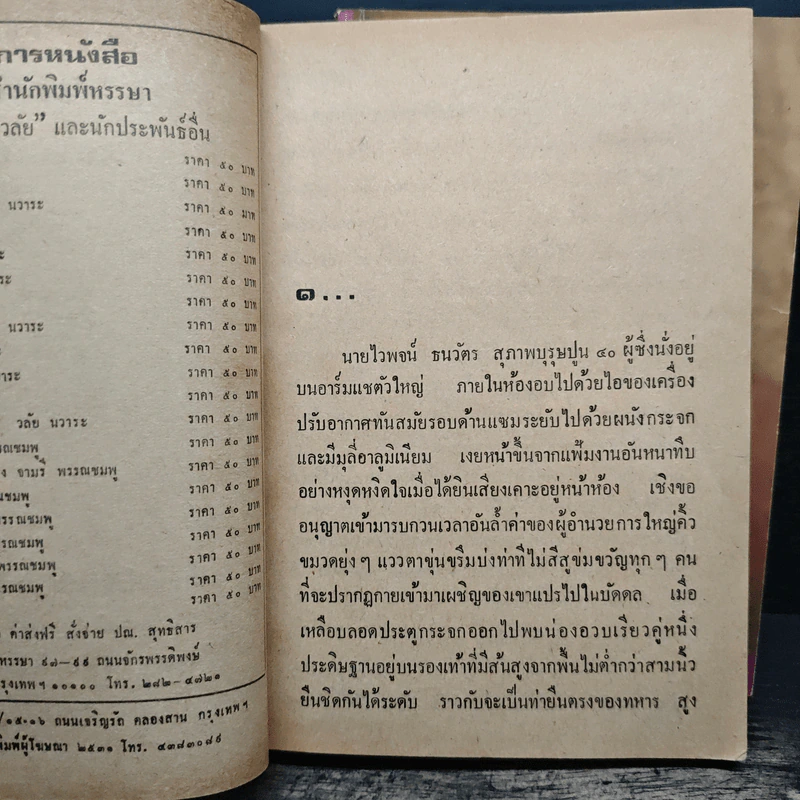 การหนังสือ
สำนักพิมพ์หรรษา
วลัย” และนักประพันธ์อื่น
ราคา ๕๐ บาท
ราคา ๕๐ บาท
นวาระ ราคา ๕๐ บาท
ราคา ๕๐ บาท
ระ ราคา ๕๐ บาท
ระ ราคา ๕๐ บาท
ราคา ๕๐ บาท
นวาระ ราคา ๕๐ บาท
ราคา ๕๐ บาท
าระ ราคา ๕๐ บาท
ราคา ๕๐ บาท
วลัย นวาระ ราคา ๕๐ บาท
ณชมพู ราคา ๕๐ บาท
ง จามรี พรรณชมพู ราคา ๕๐ บาท
ณชมพู ราคา ๕๐ บาท
พรรณชมพู ราคา ๕๐ บาท
รรณชมพู ราคา ๕๐ บาท
พรรณชมพู ราคา ๕๐ บาท
รรณชมพู ราคา ๕๐ บาท
ค่าส่งฟรี สั่งจ่าย ปณ. สุทธิสาร
หรรษา ๙๗–๙๙ ถนนจักรพรรดิพงษ์
กรุงเทพฯ ๑๐๑๐๐ โทร. ๒๘๒–๔๗๒๑
/๑๕-๑๖ ถนนเจริญรัถ คลองสาน กรุงเทพฯ
พิมพ์ผู้โฆษณา ๒๕๓๑ โทร. ๔๓๘๓๐๘๙
๑...
นายไวพจน์ ธนวัตร สุภาพบุรุษปูน ๔๐ ผู้ซึ่งนั่งอยู่
บนอาร์มแชตัวใหญ่ ภายในห้องอบไปด้วยไอของเครื่อง
ปรับอากาศทันสมัยรอบด้านแซมระยับไปด้วยผนังกระจก
และมีมุลี่อาลูมิเนียม เงยหน้าขึ้นจากแฟ้มงานอันหนาทึบ
อย่างหงุดหงิดใจเมื่อได้ยินเสียงเคาะอยู่หน้าห้อง เชิงขอ
อนุญาตเข้ามารบกวนเวลาอันล้ำค่าของผู้อำนวยการใหญ่คิ้ว
ขมวดยุ่งๆ แววตาขุ่นขริมบ่งท่าทีไม่สีสูข่มขวัญทุกๆ คน
ที่จะปรากฏกายเข้ามาเผชิญของเขาแปรไปในบัดดล เมื่อ
เหลือบลอดประตูกระจกออกไปพบน่องอวบเรียวคู่หนึ่ง
ประดิษฐานอยู่บนรองเท้าที่มีส้นสูงจากพื้นไม่ต่ำกว่าสามนิ้ว
ยืนชิดกันได้ระดับ ราวกับจะเป็นท่ายืนตรงของทหาร สูง